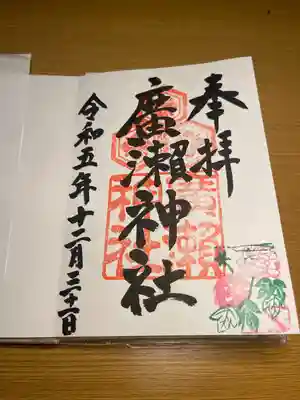 奉拝
廣瀬神社
令和五年十二月三十一日
廣瀬
神社